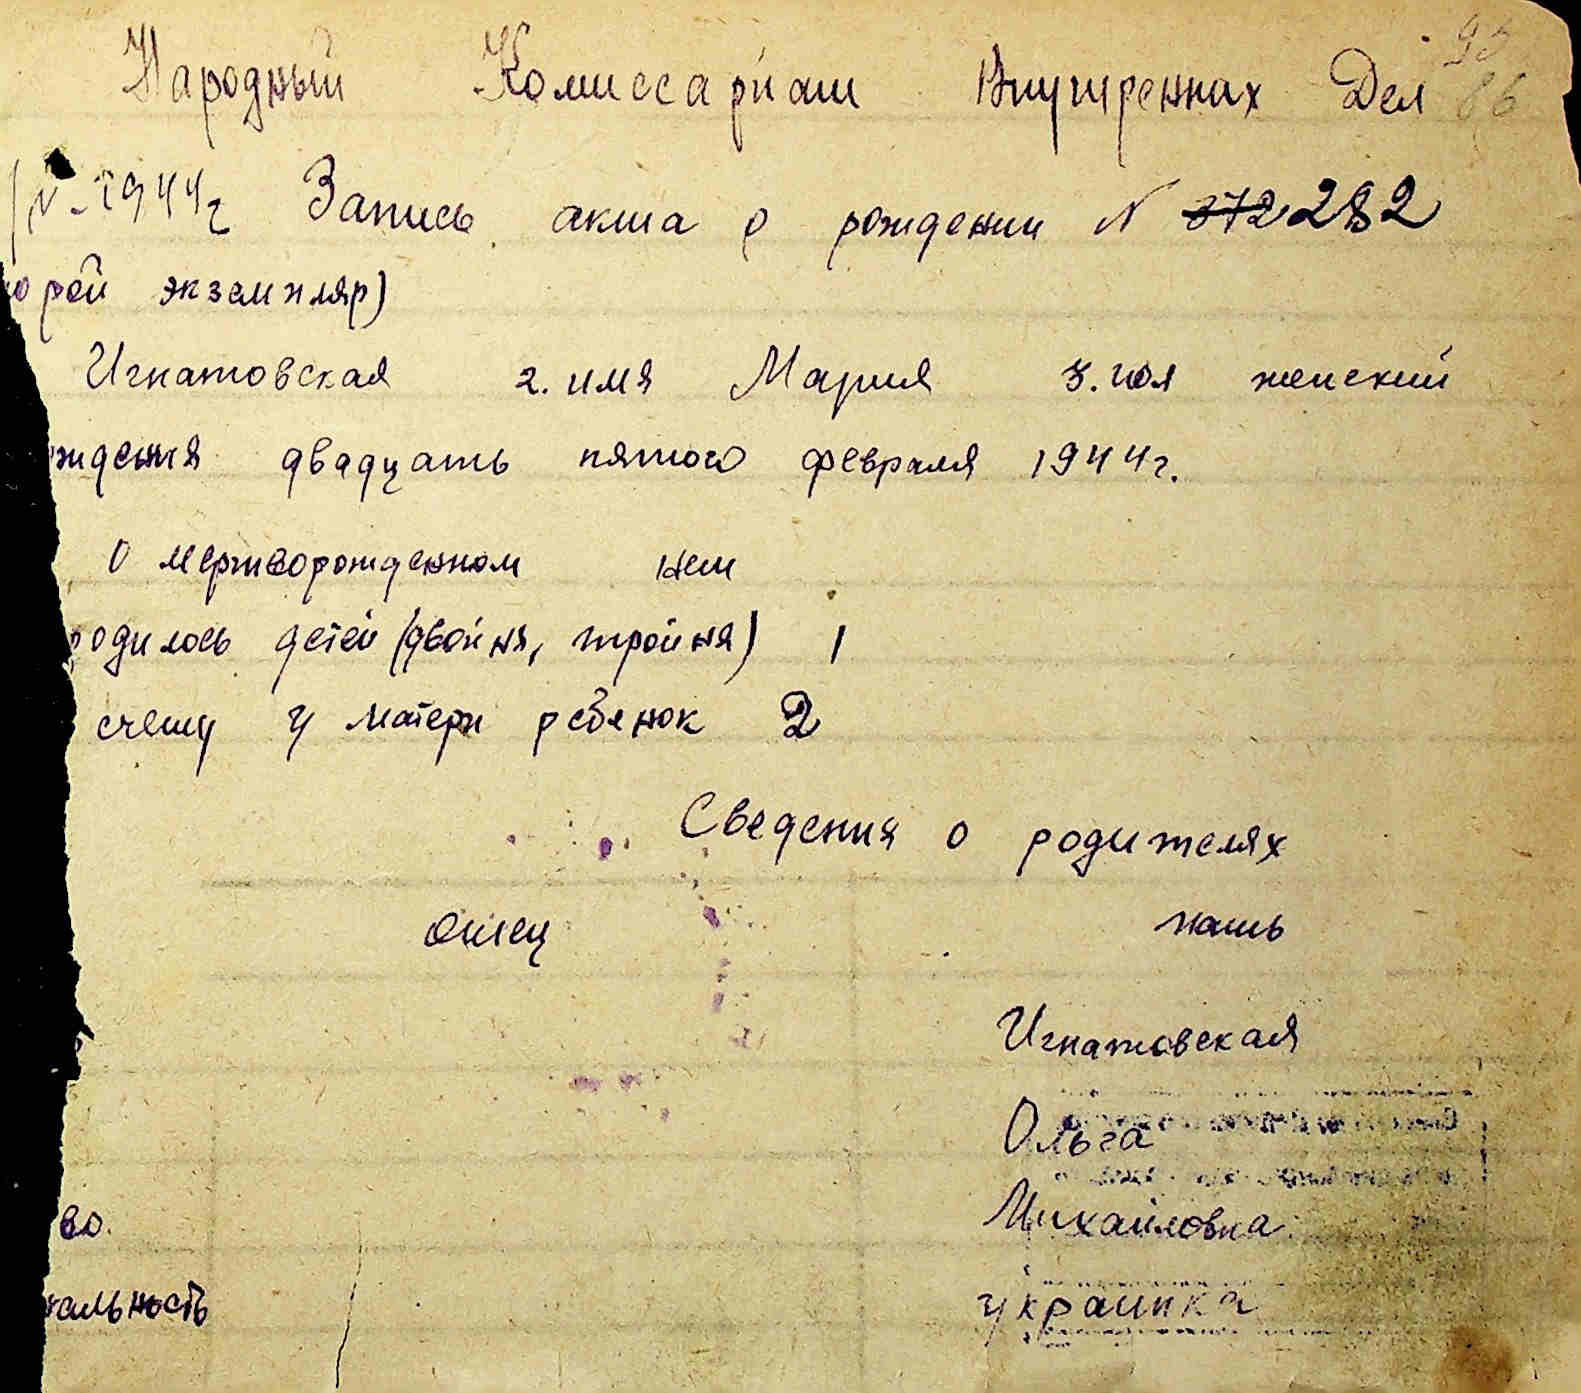 93
Народный Комиссариат Внутренних Дел 86
1944г Запись акта о рождении N 372 282
орой экземпляр)
Игнатовская 2. имя Мария 3. пол женский
ждения двадцать пятого февраля 1944г.
О мертворожденном нет
родилось детей (двойня, тройня) 1
счету у матери ребенок 2
Сведения о родителях
отец мать
Игнатовская
Ольга
во. Михайловна
нальность украинка